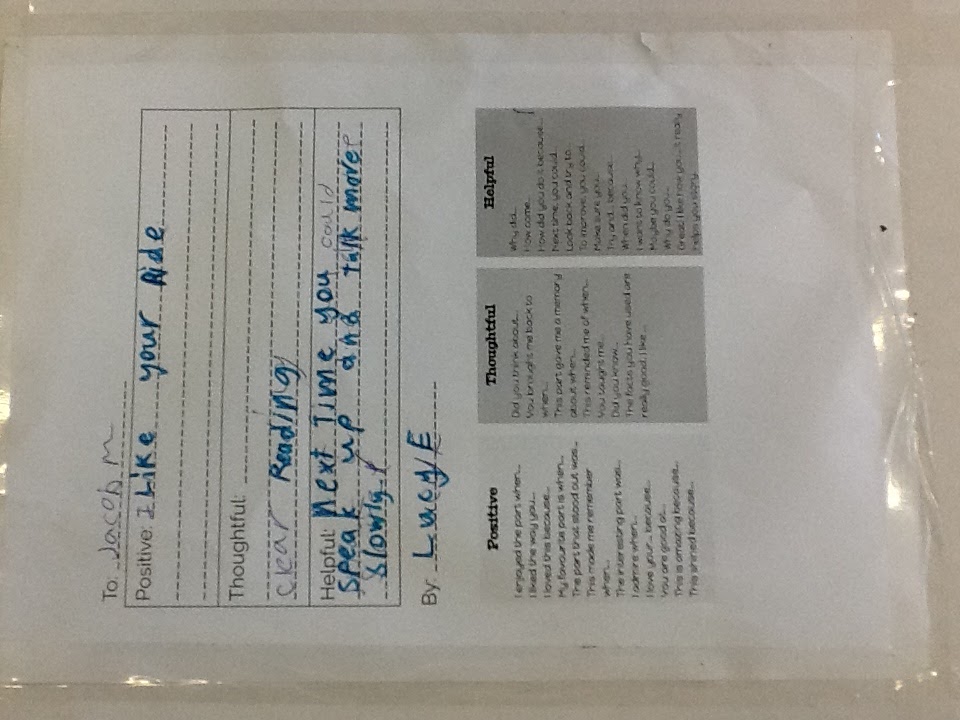 To: Jacob m
Positive: I Like your Ride
Thoughtful:
clear Reading
Helpful: Next Time you could
speak up and talk more
slowly.
By: Lucy E
Positive
I enjoyed the part when...
I liked the way you...
I loved this because...
My favourite part is when...
The part that stood out was...
This made me remember
when...
The interesting part was...
I admire when...
I love your... because...
You are good at...
This is amazing because...
This shined because...
Thoughtful
Did you think about...
You broughs me back to
when...
This part gave me a memory
about when...
This reminded me of when...
You taughs me...
Did you know...
The facts you have used are
really good. I like...
Helpful
Why did...
How come...
How did you do it because...
Next time, you could...
Look back and try to...
To improve, you could...
Make sure you...
Try and... because...
When did you...
I want to know why...
Maybe you could...
Why do you...
Great! I like how you... it really
helps your story.